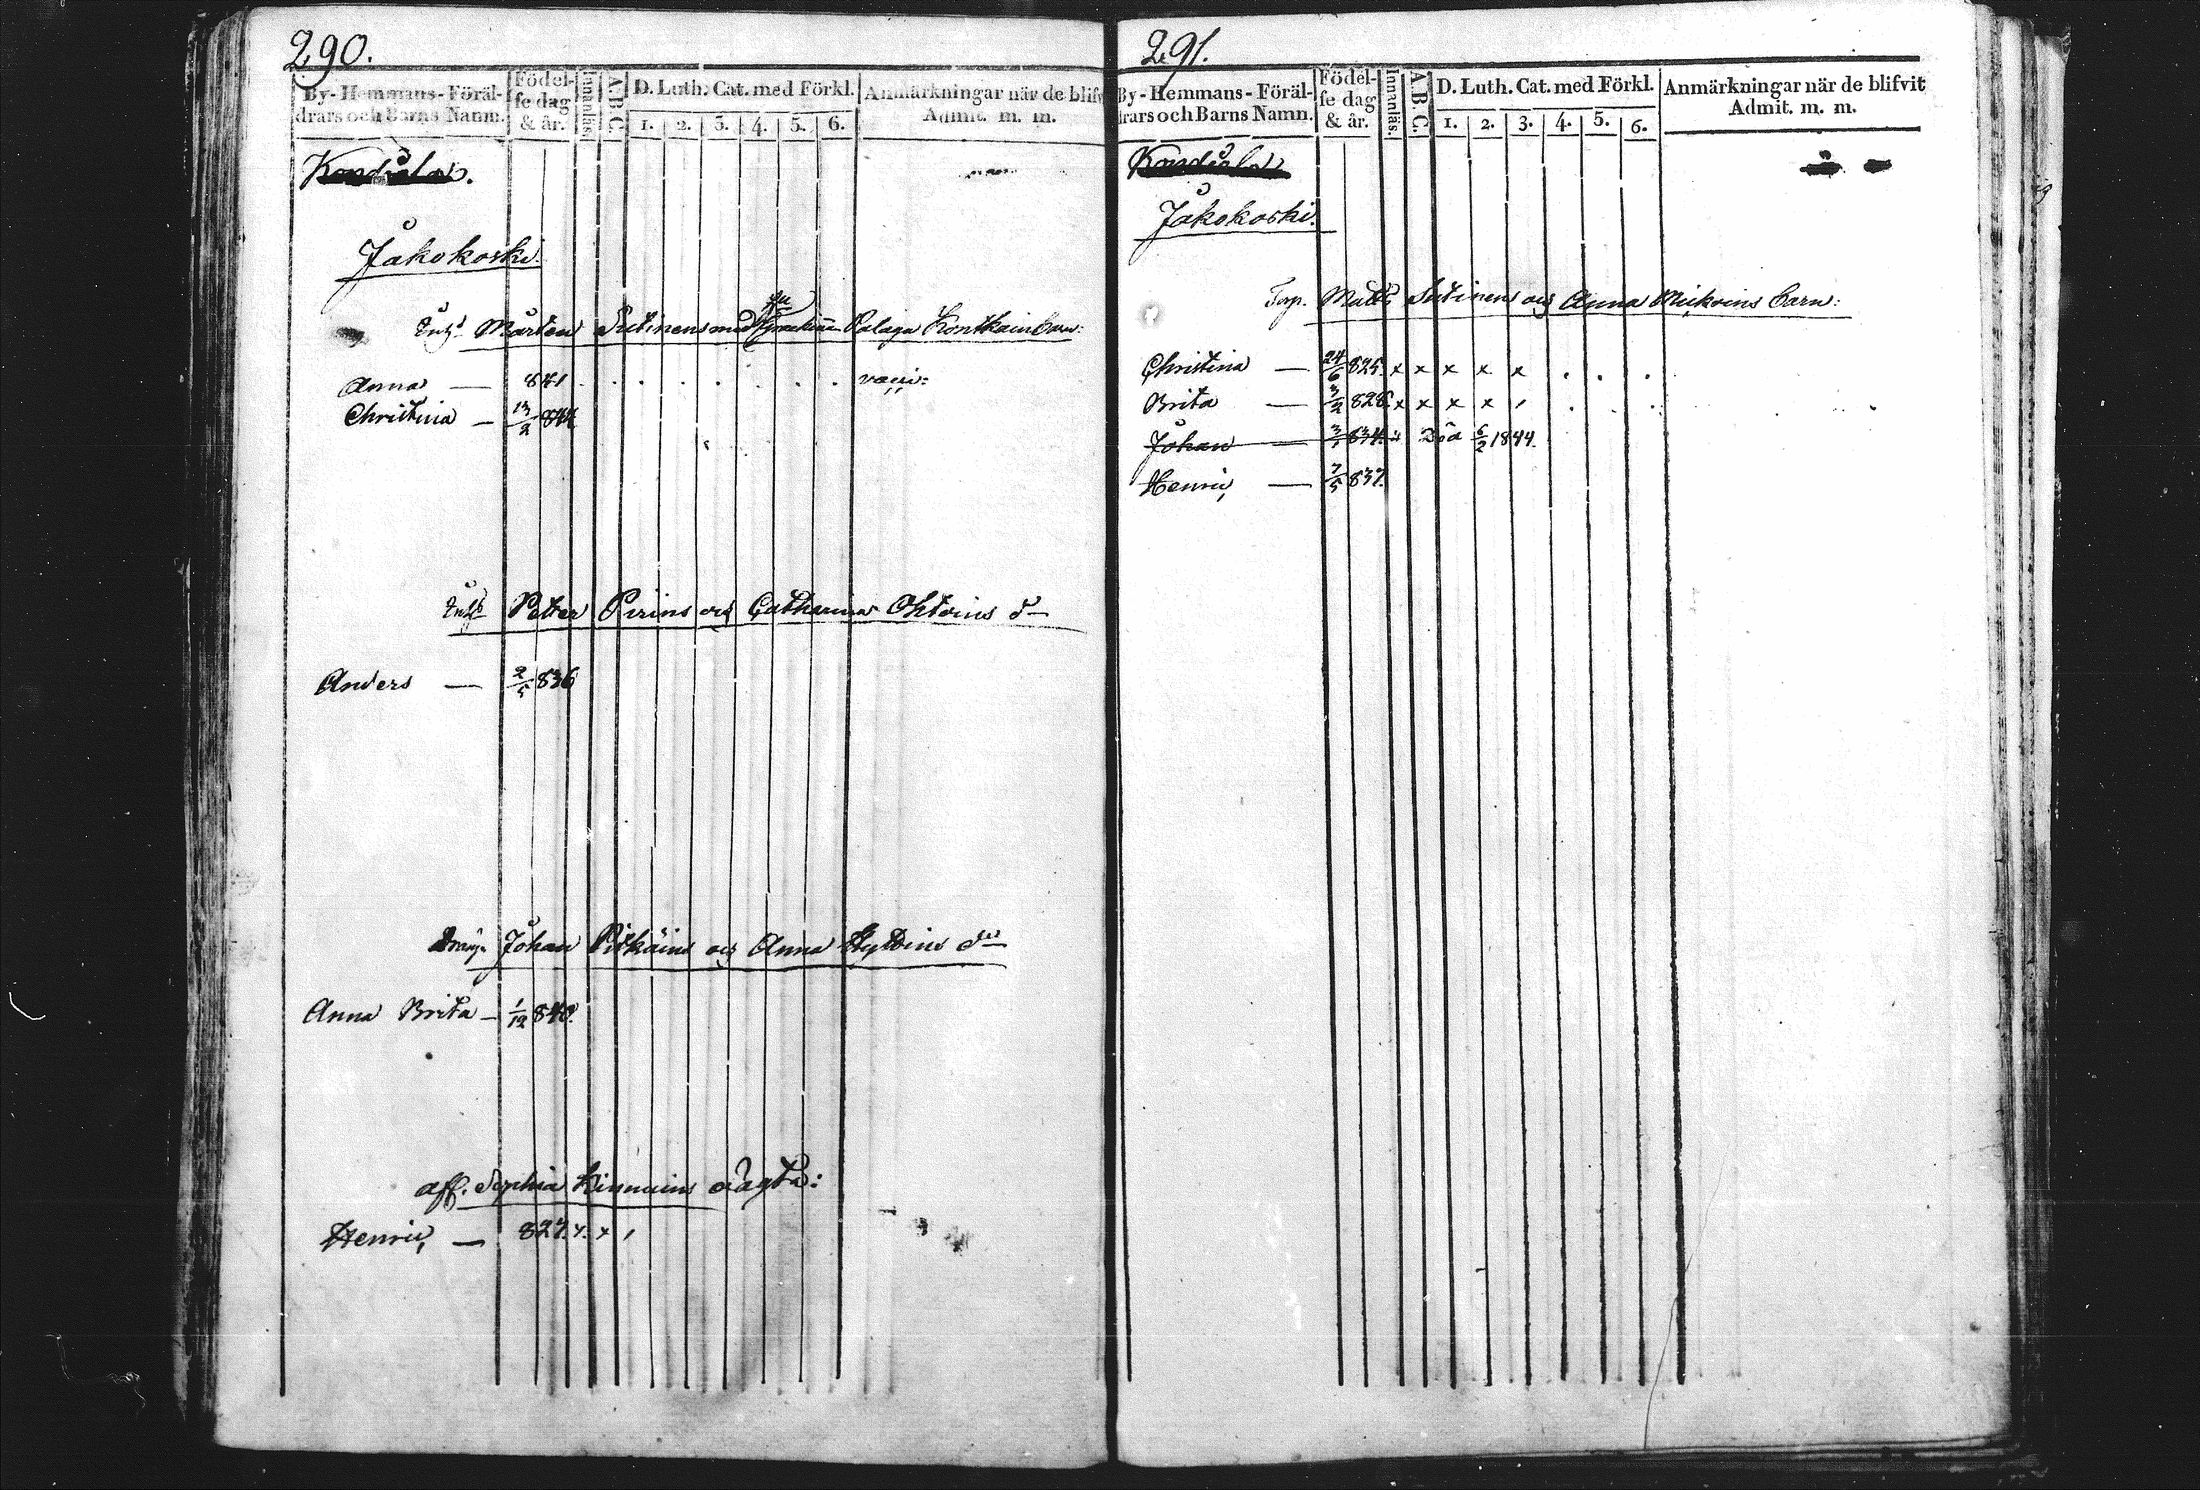 290.
By-Hemmans-Föräl-
drars och Barns Namn.
Födel-
se dag
& år.
Innanläs.
A.B.C.
D. Luth. Cat. med Förkl.
1. 2. 3. 4. 5. 6.
Anmärkningar när de blifv
Admit. m. m.
Kondŭla.
Jakokoski.
Mårten Sutinens med Palaga Kontkain barn:
Anna — 841
Christina — 13/2 844
Petter Pirins och Catharina Ohtoins d—
Anders — 2/5 836
Johan Pitkäins och Anna Hyttins d—
Anna Brita — 1/12 840.
aff. Sophia Kinnuins oägta:
Henric, — 827. x. x /
291.
By-Hemmans-Föräl-
drars och Barns Namn.
Födel-
se dag
& år.
Innanläs.
A.B.C.
D. Luth. Cat. med Förkl.
1. 2. 3. 4. 5. 6.
Anmärkningar när de blifvit
Admit. m. m.
Kondŭla
Jakokoski.
Torp. Matts Sutinens och Anna Mickoins barn:
Christina — 24/6 825. x x x x x
Brita — 3/2 828. x x x x /
Johan — 834. Död 6/2 1844.
Henric, — 7/5 837.